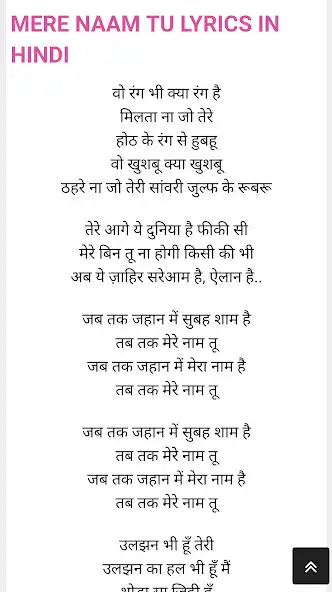 MERE NAAM TU LYRICS IN
HINDI
वो रंग भी क्या रंग है
मिलता ना जो तेरे
होठ के रंग से हुबहू
वो खुशबू क्या खुशबू
ठहरे ना जो तेरी सांवरी जुल्फ के रूबरू
तेरे आगे ये दुनिया है फीकी सी
मेरे बिन तू ना होगी किसी की भी
अब ये ज़ाहिर सरेआम है, ऐलान है..
जब तक जहान में सुबह शाम है
तब तक मेरे नाम तू
जब तक जहान में मेरा नाम है
तब तक मेरे नाम तू
जब तक जहान में सुबह शाम है
तब तक मेरे नाम तू
जब तक जहान में मेरा नाम है
तब तक मेरे नाम तू
उलझन भी हूँ तेरी
उलझन का हल भी हूँ मैं
थोड़ा सा जिद्दी हूँ